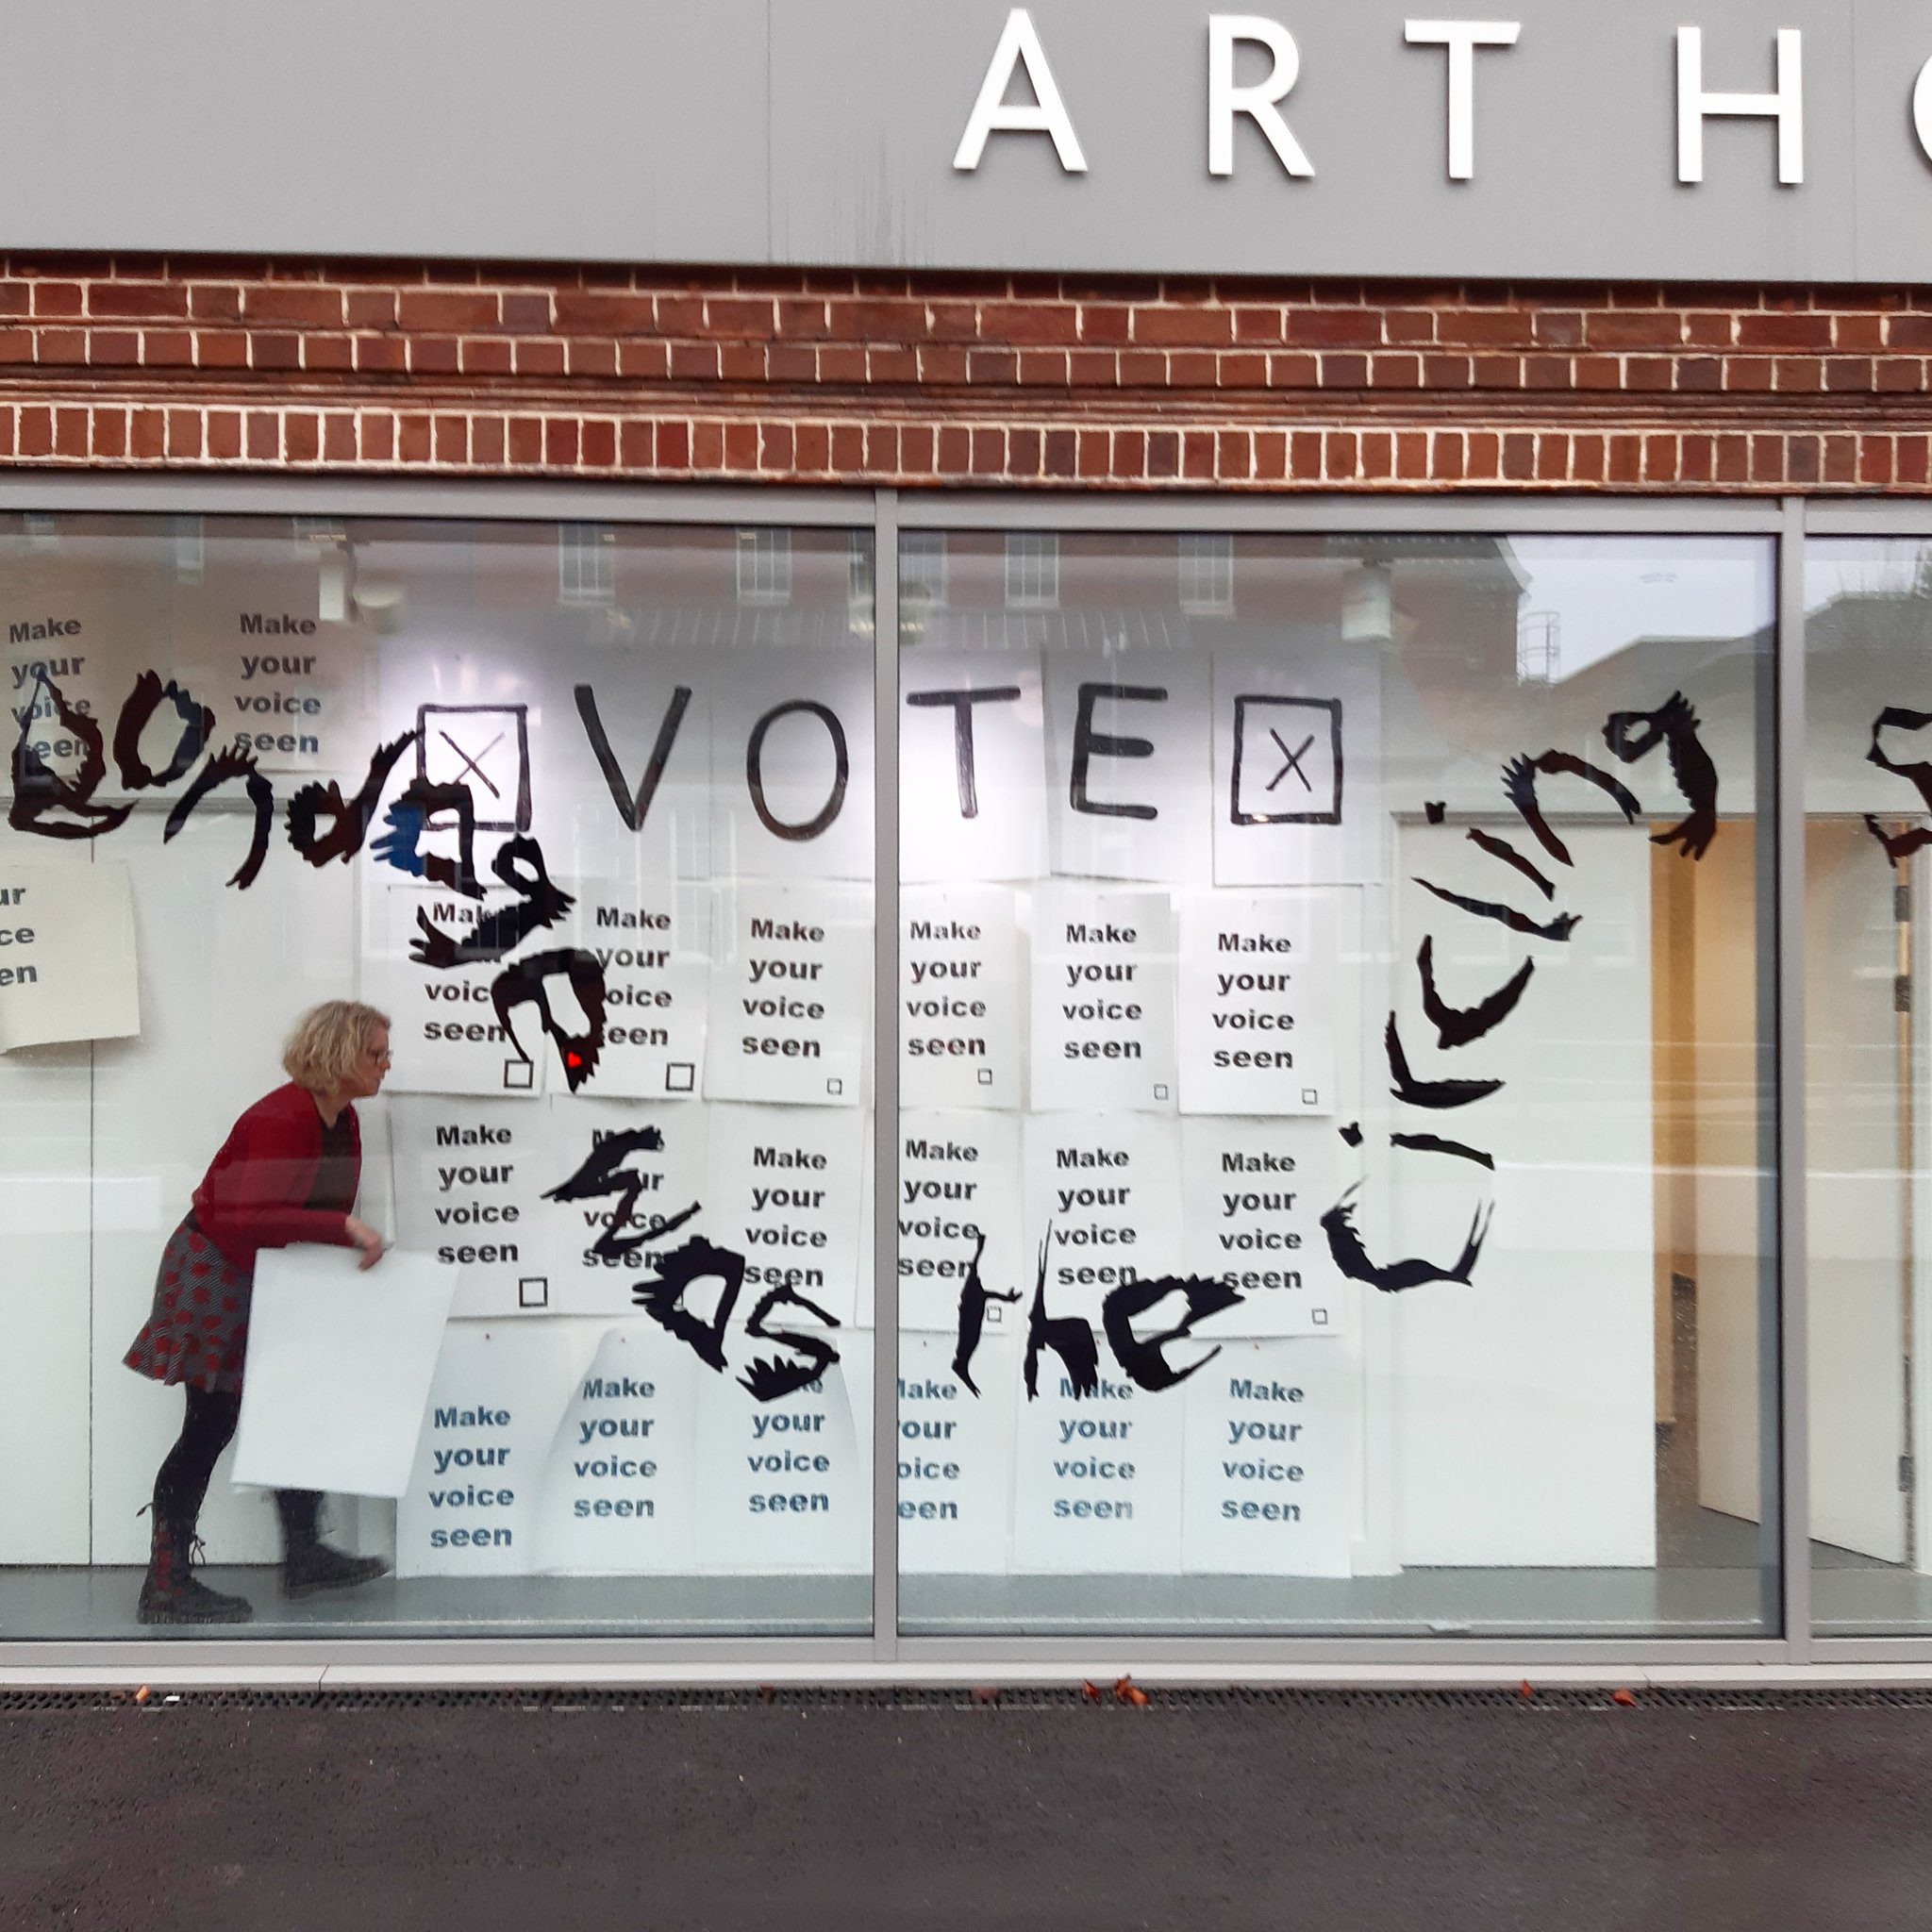 ART HO
Make
your
voice
seen
Make
your
voice
seen
X VOTE X
ur
ce
en
Make
voice
seen
Make
your
voice
seen
Make
your
voice
seen
Make
your
voice
seen
Make
your
voice
seen
Make
your
voice
seen
Make
your
voice
seen
Make
your
voice
seen
Make
your
voice
seen
Make
your
voice
seen
Make
your
voice
seen
Make
your
voice
seen
was the
Make
your
voice
seen
Make
your
voice
seen
your
voice
seen
Make
your
voice
seen
Make
your
voice
seen
Make
your
voice
seen